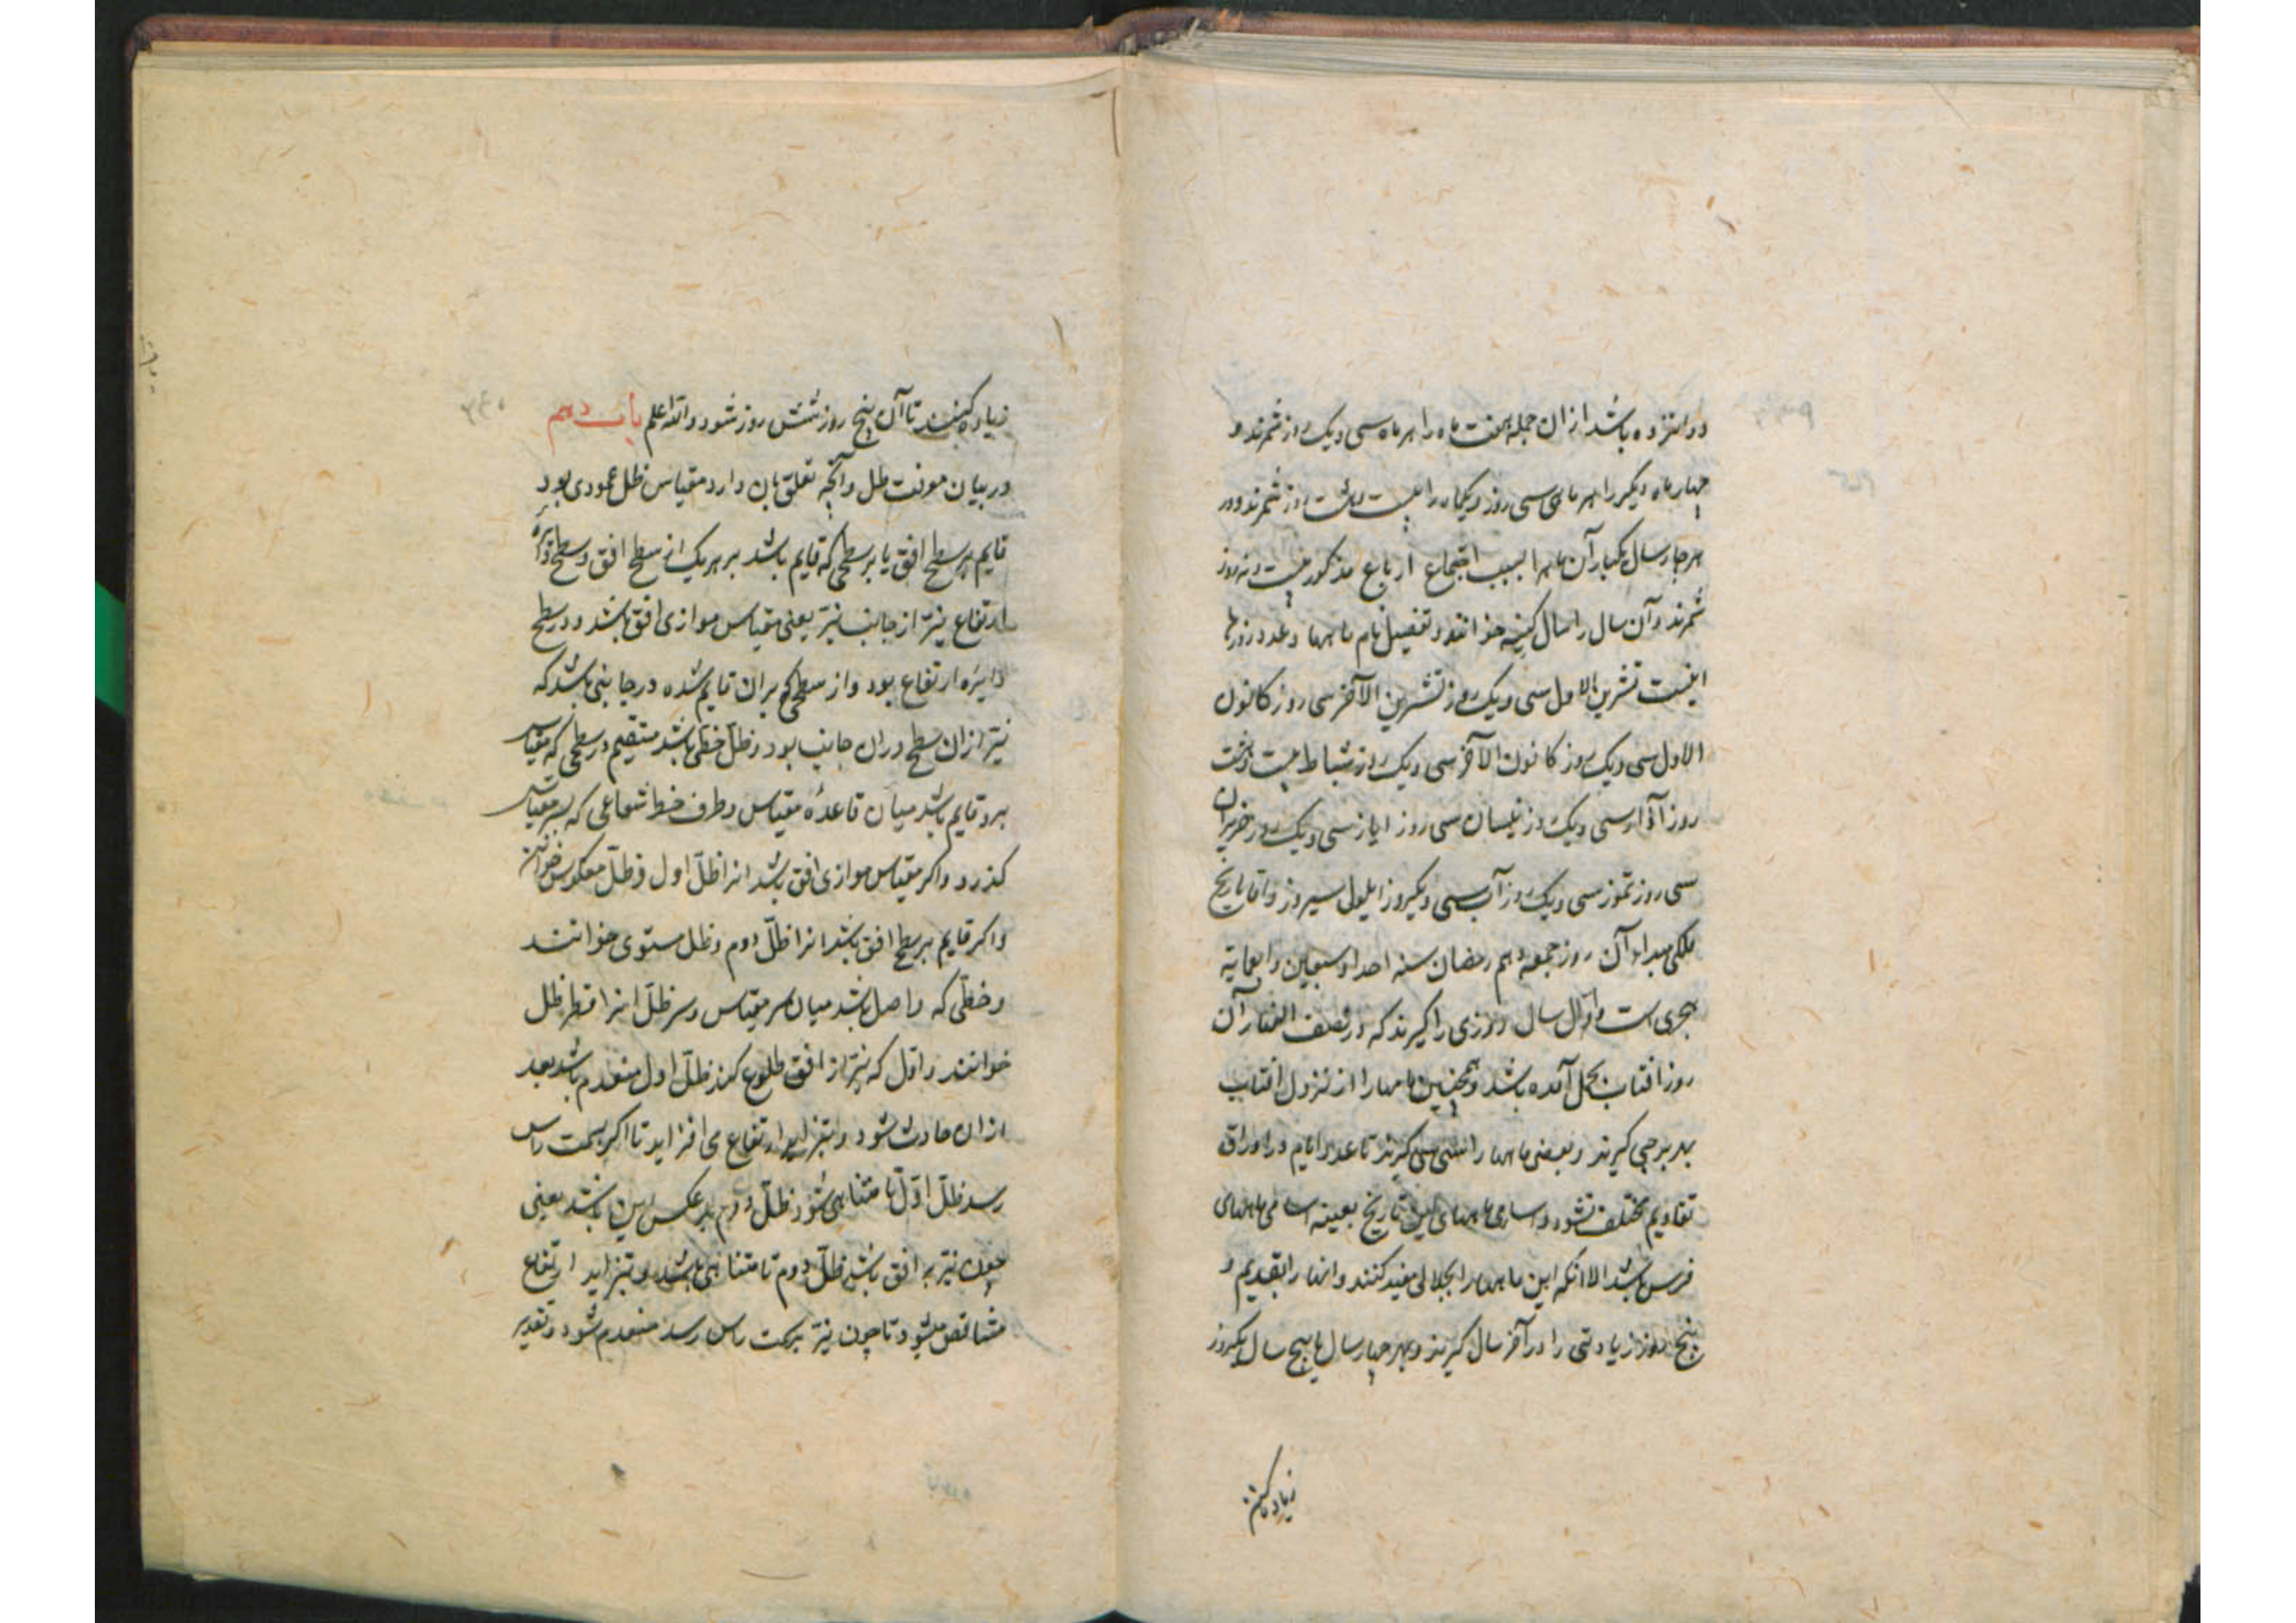 دوانزده باشد از ان جمله هفت ماه را هر ماه سی و یک روز شمرند و
چهار ماه دیگر را هر ماهی سی روز و یکماه را بیست و هشت روز شمرند و در
هر چهار سال یکبار آن ماه را بسبب اجتماع ارباع مذکور بیست و نه روز
شمرند و آن سال را سال کبیسه خوانند و تفصیل نام ماهها و عدد روزها
اینست تشرین الاول سی و یک روز تشرین الآخر سی روز کانون
الاول سی و یک روز کانون الآخر سی و یک روز شباط بیست و هشت
روز آذار سی و یک روز نیسان سی روز ایار سی و یک روز حزیران
سی روز تموز سی و یک روز آب سی و یکروز ایلول سیروز و اما تاریخ
ملکی مبداء آن روز جمعه دهم رمضان سنه احدا و سبعین و اربعمایة
هجری است و اول سال روزی را گیرند که در نصف النهار آن
روز افتاب بحمل آمده باشد و همچنین ماهها را از نزول افتاب
بهر برجی گیرند و بعضی ماهها را سی سی گیرند تا عدد ایام در اوراق
تقاویم مختلف نشود و اسامی ماههای این تاریخ بعینه اسامی ماههای
فرس باشد الا انکه این ماهها را بجلالی مقید کنند و انها را بقدیم و
پنج روز زیادتی را در آخر سال گیرند و بهر چهار سال یا پنج سال یکروز
زیاده کنند
زیاده کنند تا آن پنج روز شش روز شود و الله اعلم باب دهم
در بیان معرفت ظل و آنچه تعلق بان دارد مقیاس ظل عمودی بود
قایم بر سطح افق یا بر سطحی که قایم باشد بر هر یک از سطح افق و سطح دایرهٔ
ارتفاع نیّر از جانب نیّر یعنی مقیاس موازی افق باشد و در سطح
دایرهٔ ارتفاع بود و از سطحی که بران قایم شده در جانبی باشد که
نیّر از ان سطح دران جانب بود و ظلّ خطی باشد مستقیم در سطحی که مقیاس
برو قایم باشد میان قاعدهٔ مقیاس و طرف خط شعاعی که بسر مقیاس
گذرد و اکر مقیاس موازی افق باشد انرا ظلّ اول و ظلّ معکوس خوانند
و اکر قایم بر سطح افق باشد انرا ظلّ دوم و ظل مستوی خوانند
و خطّی که واصل باشد میان سر مقیاس و سر ظلّ انرا قطر ظل
خوانند و اول که نیّر از افق طلوع کند ظلّ اول منعدم باشد و بعد
از ان حادث شود و بتزاید ارتفاع می افزاید تا اکر بسمت راس
رسد ظلّ اوّل نامتناهی شود و ظلّ دوم بر عکس این باشد یعنی
چون نیّر بر افق باشد ظلّ دوم نامتناهی باشد و بتزاید ارتفاع
متناقص میشود تا چون نیّر بسمت راس رسد منعدم شود و تقدیر